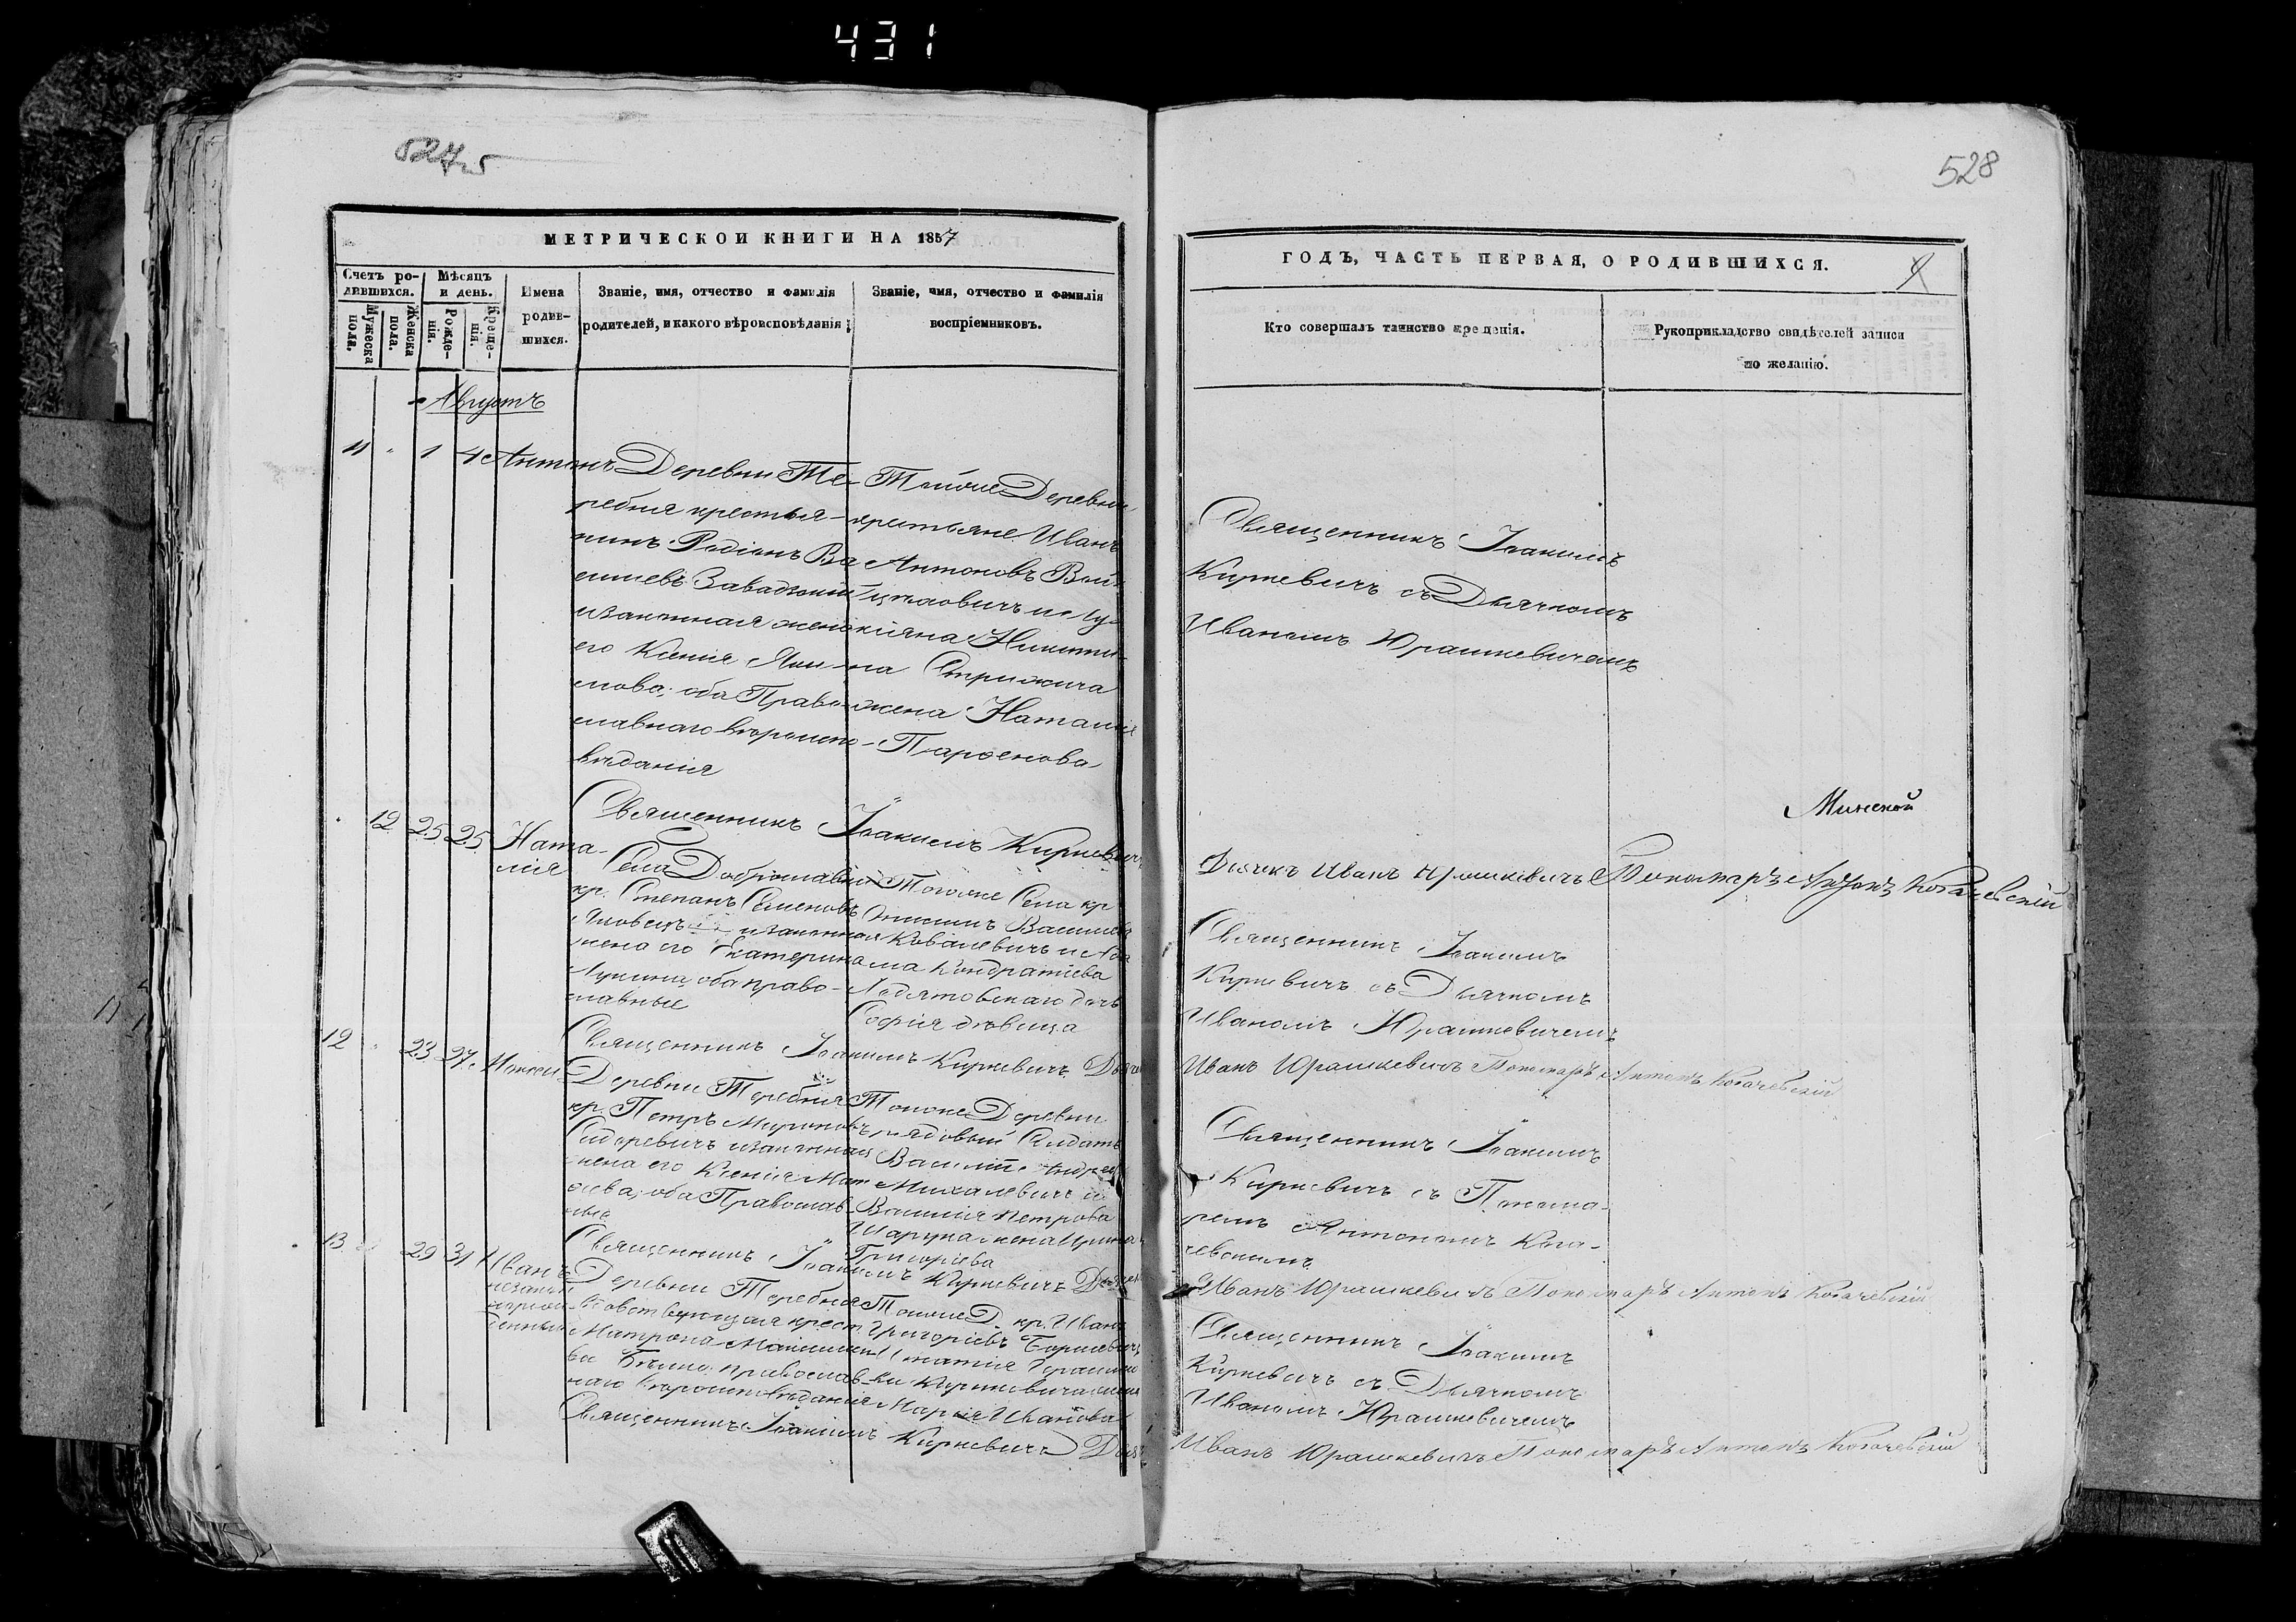 431
527
528
МЕТРИЧЕСКОЙ КНИГИ НА 1857
Счетъ ро-
дившихся.
Мужеска
пола.
Женска
пола.
Мѣсяцъ
и день.
Рожде-
нія.
Креще-
нія.
Имена
родив-
шихся.
Званіе, имя, отчество и фамилія
родителей, и какого вѣроисповѣданія
Званіе, имя, отчество и фамилія
воспріемниковъ.
Августъ
11 " 1 4 Антонъ
Деревни Те-
ребня крестья-
нинъ Родіонъ Ва
сильевъ Завадскій
и законная жена
его Ксенія Яки-
мова, оба Право-
славнаго вѣроиспо-
вѣданія
Тойже Деревни
крестьяне Иванъ
Антоновъ Вой-
цеховичъ и
Никити-
на Стрижича
жена Наталія
Парѳенова
Священникъ Іоакимъ Киркевичъ
12 25 25 Ната-
лія
Села Доброславки
кр. Степанъ Семеновъ
и законная
жена его Екатерина
Лукина, оба право-
славные
Тогоже Села кр
Онисимъ Васильевъ
Ковалевичъ и
Кондратіева
дочь
Софія дѣвица
Священникъ Іоакимъ Киркевичъ
12 " 23 27
Деревни Теребня
кр. Петръ Мироновъ
Сидоревичъ и законная
жена его Ксенія Мат
ѳеева, оба Православ-
ные
Тойже Деревни
рядовый Солдатъ
Василій Андреевъ
Михалевичъ и
Василія Петрова
жена Ирина
Григорьева
Священникъ Іоакимъ Киркевичъ
13 29 31 Иванъ
незакон
норож
денный
Деревни Теребня
крест
Матрона Максимо
ва православ-
наго вѣроисповѣданія
Тойже Д. кр. Иванъ
Григорьевъ
Игнатія
Марія Иванова
Священникъ Іоакимъ Киркевичъ
ГОДЪ, ЧАСТЬ ПЕРВАЯ, О РОДИВШИХСЯ.
Кто совершалъ таинство крещенія.
Рукоприкладство свидѣтелей записи
по желанію.
Священникъ Іоакимъ
Киркевичъ съ Дьячкомъ
Иваномъ Юрашкевичемъ
Минской
Дьячекъ Иванъ Юрашкевичъ Пономарь Антонъ Когачевскій
Священникъ Іоакимъ
Киркевичъ съ Дьячкомъ
Иваномъ Юрашкевичемъ
Иванъ Юрашкевичъ Пономарь Антонъ Когачевскій
Священникъ Іоакимъ
Киркевичъ съ Понома-
ремъ Антономъ Кога-
чевскимъ
Иванъ Юрашкевичъ Пономарь Антонъ Когачевскій
Священникъ Іоакимъ
Киркевичъ съ Дьячкомъ
Иваномъ Юрашкевичемъ
Иванъ Юрашкевичъ Пономарь Антонъ Когачевскій